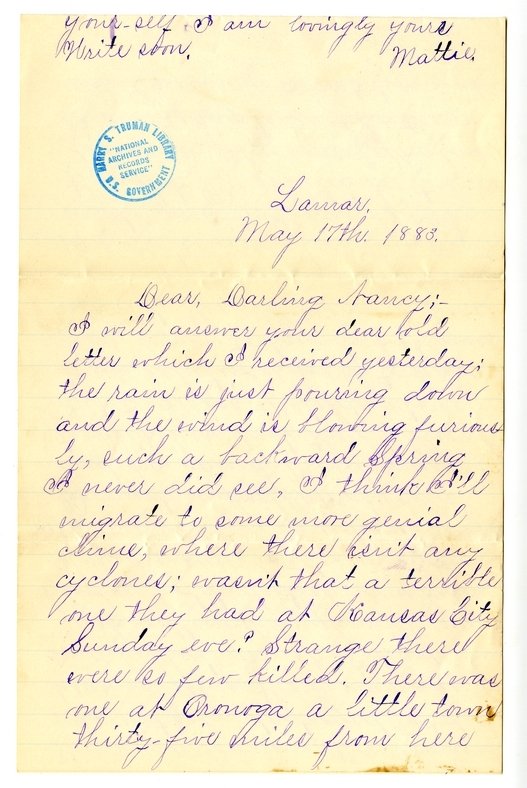 your-self. I am lovingly yours
Write soon. Mattie.
HARRY S. TRUMAN LIBRARY
"NATIONAL
ARCHIVES AND
RECORDS
SERVICE"
U.S. GOVERNMENT
Lamar,
May 17th. 1883.
Dear, Darling Nancy;-
I will answer your dear old
letter which I received yesterday;
the rain is just pouring down
and the wind is blowing furious-
ly, such a backward Spring
I never did see, I think I'll
migrate to some more genial
clime, where there isn't any
cyclones; wasn't that a terrible
one they had at Kansas City
Sunday eve? Strange there
were so few killed. There was
one at Oronoga a little town
thirty-five miles from here